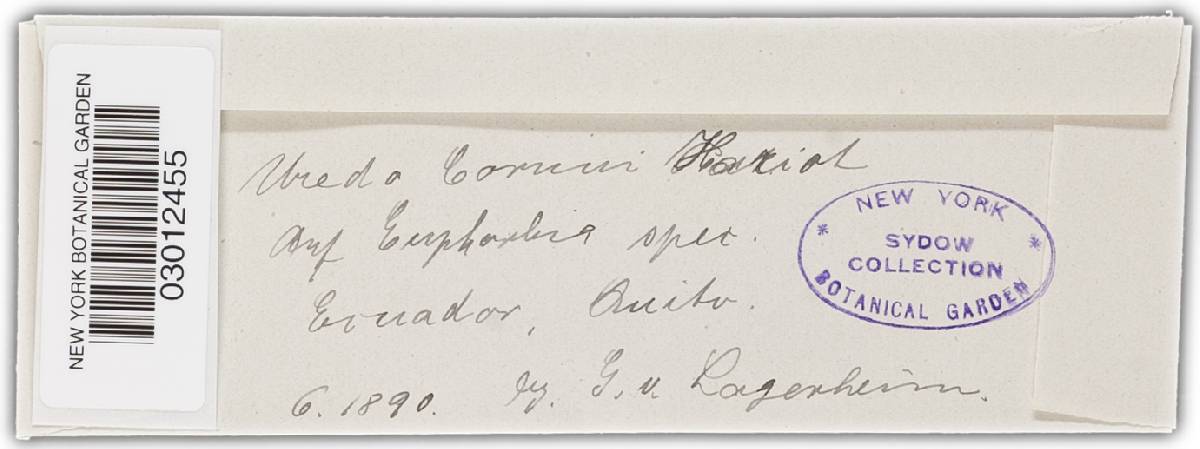 NEW YORK BOTANICAL GARDEN
03012455
Uredo Cornui Hariot
auf Euphorbia spec.
Ecuador, Quito.
6. 1890. leg. G. v. Lagerheim.
NEW YORK
SYDOW
COLLECTION
BOTANICAL GARDEN